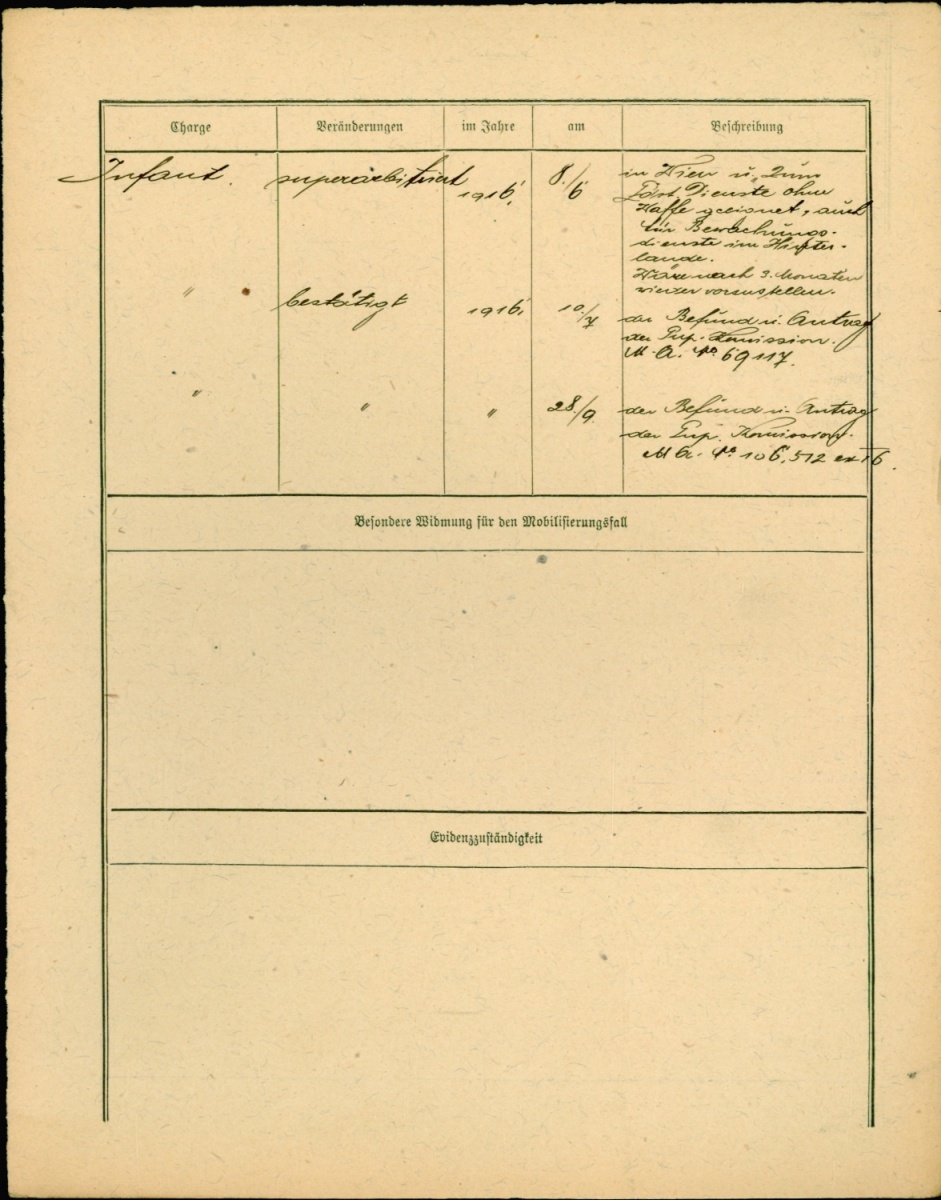 Charge Veränderungen im Jahre am Beschreibung
Infant. superarbitriert 1916. 8./6 in Wien u. zum
Dienste ohne
Waffe geeignet, auch
für Bewachungs-
dienste im Hinter-
lande.
Wäre nach 3. Monaten
wieder vorzustellen.
" bestätigt 1916. 10./7 der Befund u. Antrag
der Sup. Komission.
M. A. No 69117.
" " " 28./9. der Befund u. Antrag
der Sup. Komission.
M A. No 106,512 ex 16.
Besondere Widmung für den Mobilisierungsfall
Evidenzzuständigkeit